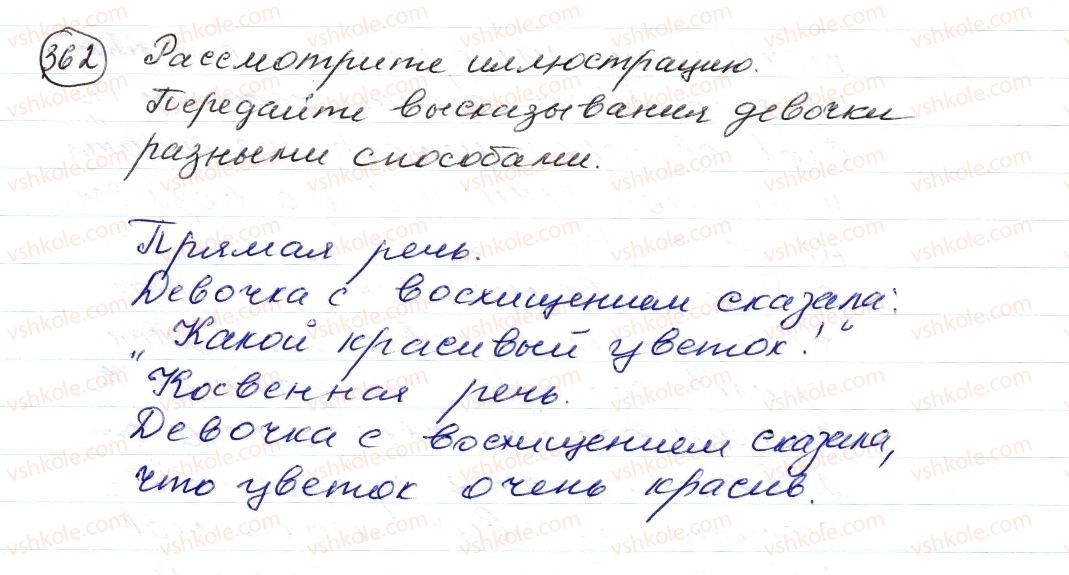 362 Рассмотрите иллюстрацию.
Передайте высказывания девочки
разными способами.
Прямая речь.
Девочка с восхищением сказала:
„Какой красивый цветок!“
Косвенная речь.
Девочка с восхищением сказала,
что цветок очень красив.